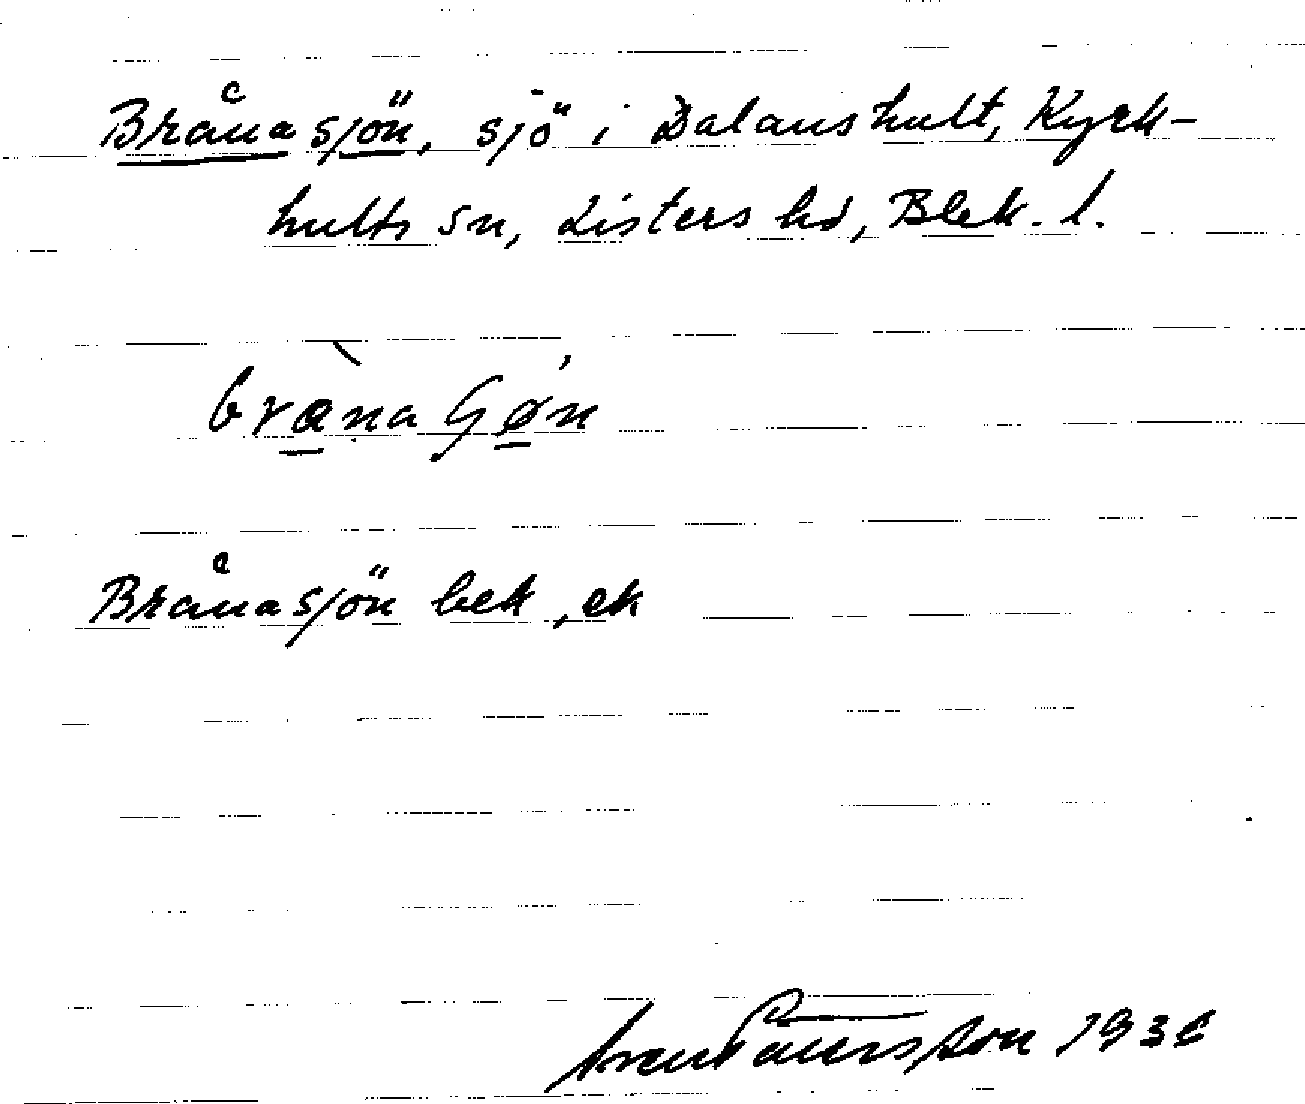 Brånasjön, sjö i Dalanshult, Kyrk-
hults sn, Listers hd, Blek. l.
Brånasjön bek, ek
1936